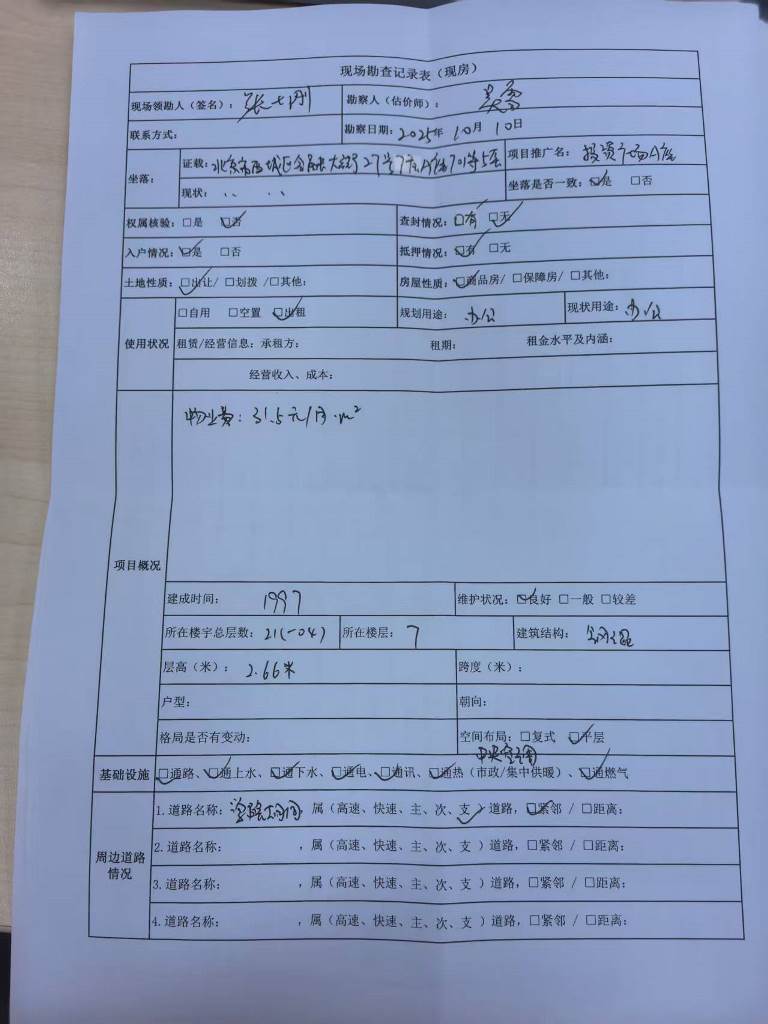 现场勘查记录表（现房）
现场领勘人（签名）： 勘察人（估价师）：
联系方式： 勘察日期：2025年10月10日
坐落： 证载：北京市西城区 大街27号 7 A座701等5套 项目推广名：投资广场A座
现状：〃 〃 坐落是否一致：☑是 □否
权属核验：□是 ☑否 查封情况：□有 ☑无
入户情况：☑是 □否 抵押情况：☑有 □无
土地性质：☑出让/ □划拨 /□其他： 房屋性质：☑商品房/ □保障房/ □其他：
使用状况 □自用 □空置 ☑出租 规划用途：办公 现状用途：办公
租赁/经营信息：承租方： 租期： 租金水平及内涵：
经营收入、成本：
项目概况
物业费：31.5元/月·m²
建成时间：1997 维护状况：☑良好 □一般 □较差
所在楼宇总层数：21(-04) 所在楼层：7 建筑结构：钢混
层高（米）：2.66米 跨度（米）：
户型： 朝向：
格局是否有变动： 空间布局：□复式 ☑平层
中央空调
基础设施 ☑通路、☑通上水、☑通下水、☑通电、☑通讯、☑通热（市政/集中供暖）、☑通燃气
周边道路情况 1.道路名称： 胡同，属（高速、快速、主、次、支✓）道路，☑紧邻 / □距离：
2.道路名称： ，属（高速、快速、主、次、支 ）道路，□紧邻 / □距离：
3.道路名称： ，属（高速、快速、主、次、支 ）道路，□紧邻 / □距离：
4.道路名称： ，属（高速、快速、主、次、支 ）道路，□紧邻 / □距离：